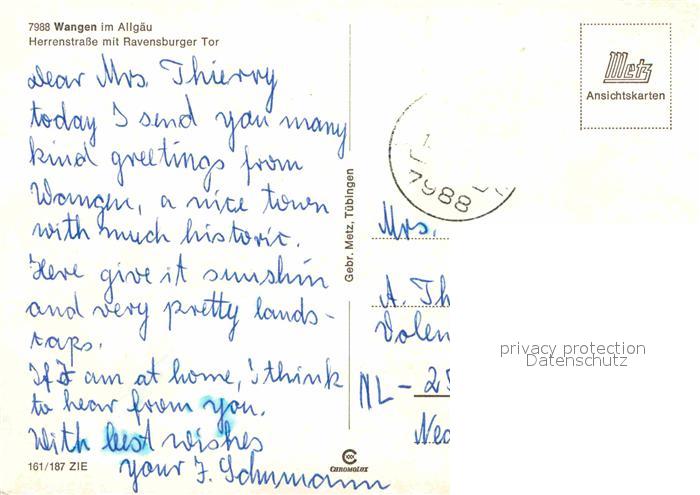 7988 Wangen im Allgäu
Herrenstraße mit Ravensburger Tor
Dear Mrs. Thierry
today I send you many
kind greetings from
Wangen, a nice town
with much historic.
Here give it sunshin
and very pretty lands-
caps.
If I am at home, I think
to hear from you.
With best wishes
your J. Schumann
161/187 ZIE
Gebr. Metz, Tübingen
CHROMOLUX
Metz
Ansichtskarten
7988
Mrs.
A. Th
Volen
NL - 25
Nec
privacy protection
Datenschutz